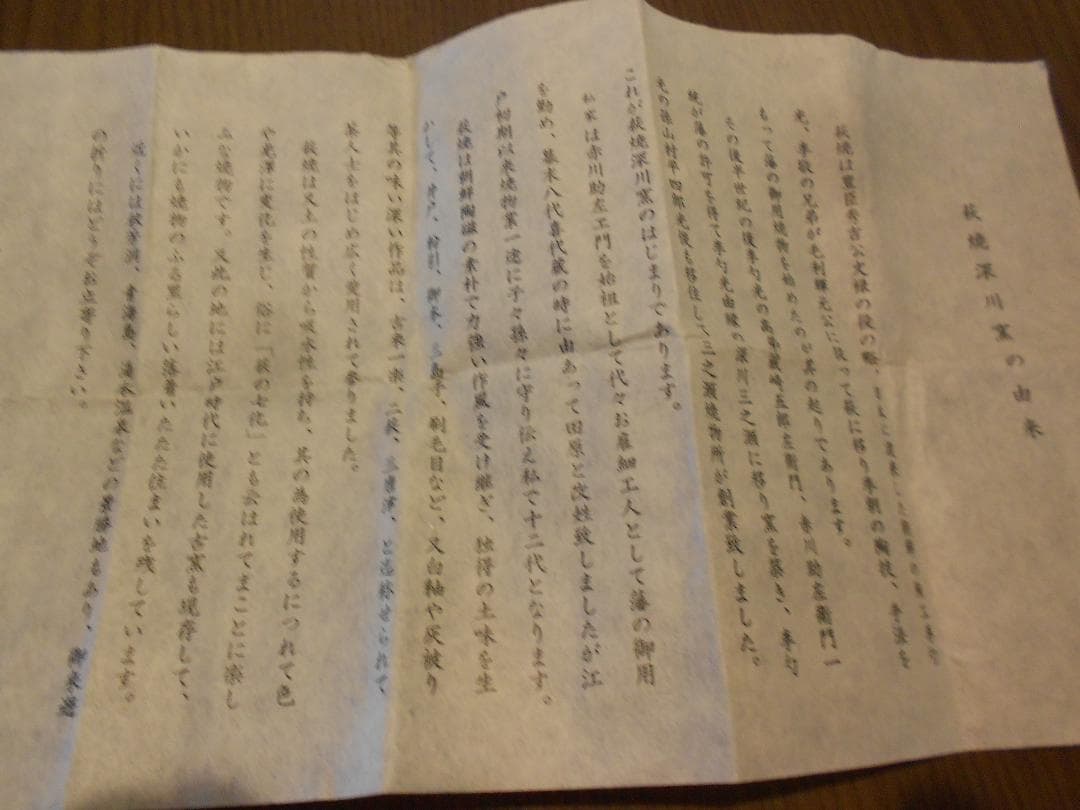 萩焼深川窯の由来
萩焼は豊臣秀吉公文禄の役の際、
光、李敬の兄弟が毛利輝元公に従って萩に移り李朝の陶技、手法を
もって藩の御用焼物を始めたのが其の起りであります。
その後半世紀の後李勺光の高弟蔵崎五郎左衛門、赤川助左衛門一
統が藩の許可を得て李勺光由縁の深川三之瀬に移り窯を築き、李勺
光の孫山村平四郎光俊も移住して三之瀬焼物所が創業致しました。
これが萩焼深川窯のはじまりであります。
私家は赤川助左エ門を始祖として代々お雇細工人として藩の御用
を勤め、幕末八代喜代蔵の時に由あって田原と改姓致しましたが江
戸初期以来焼物業一途に子々孫々に守り伝え私で十二代となります。
萩焼は朝鮮陶磁の素朴で力強い作風を受け継ぎ、独得の土味を生
かして、井戸、粉引、御本、三島手、刷毛目など、又白釉や灰被り
等其の味い深い作品は、古来一楽、二萩、三唐津、と追称せられて
茶人士をはじめ広く愛用されて参りました。
萩焼は又土の性質から吸水性を持ち、其の為使用するにつれて色
や光澤に変化を生じ、俗に「萩の七化」とも云はれてまことに楽し
みな焼物です。又此の地には江戸時代に使用した古窯も現存して、
いかにも焼物のふる里らしい落着いたたた住まいを残しています。
近くには秋芳洞、青海島、湯本温泉などの景勝地もあり、御来遊
の折りにはどうぞお立寄り下さい。